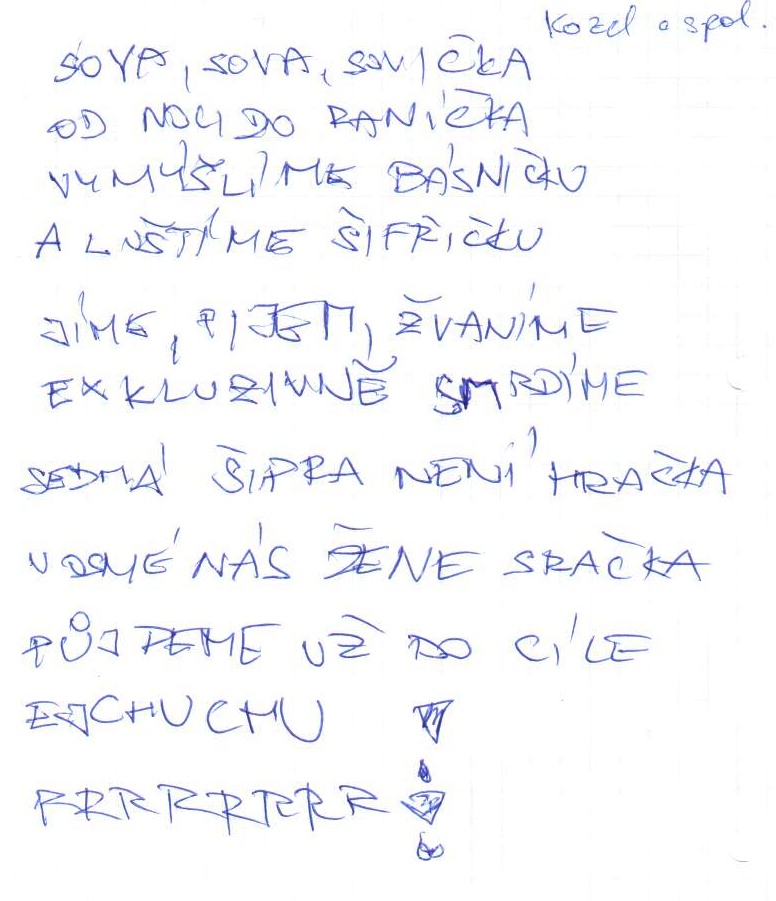 Kozel a spol.
SOVA, SOVA, SOVIČKA
OD NOCI DO RANÍČKA
VYMÝŠLÍME BÁSNIČKU
A LUŠTÍME ŠIFŘIČKU
JÍME, PIJEM, ŽVANÍME
EXKLUZIVNĚ SMRDÍME
SEDMÁ ŠIPRA NENÍ HRAČKA
V OSMÉ NÁS ŽENE SRAČKA
PŮJDEME UŽ DO CÍLE
EJCHUCHU !
RRRRRRRR !